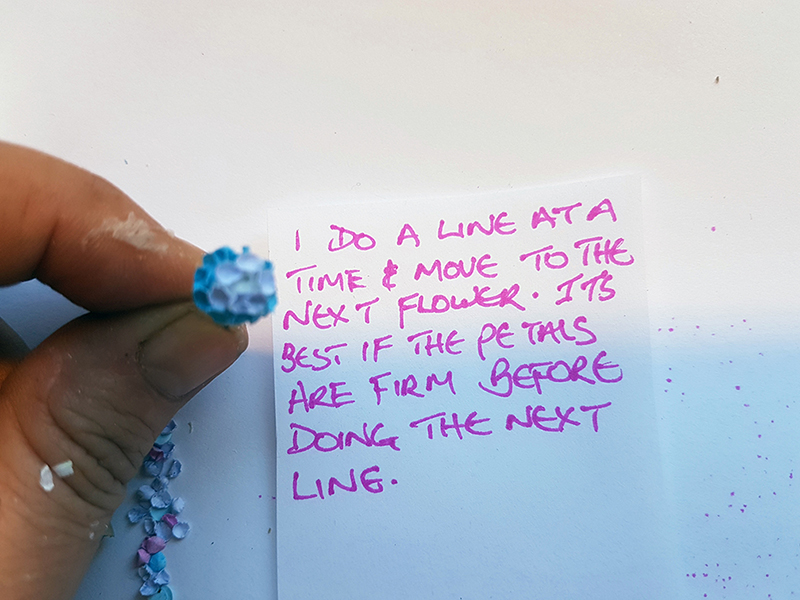 I DO A LINE AT A
TIME & MOVE TO THE
NEXT FLOWER. ITS
BEST IF THE PETALS
ARE FIRM BEFORE
DOING THE NEXT
LINE.